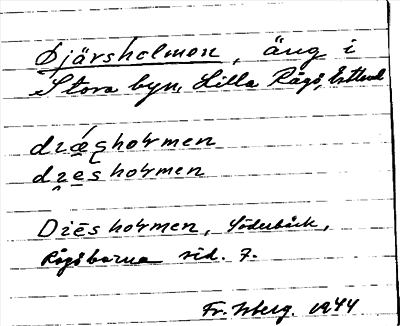 Djärsholmen, äng i
Stora byn, Lilla Rågö, Estland
dzǣsholmen
dzēsholmen
Dzēsholmen, Söderbäck,
Rågöbarna sid. 7.
Fr. Isberg. 1944